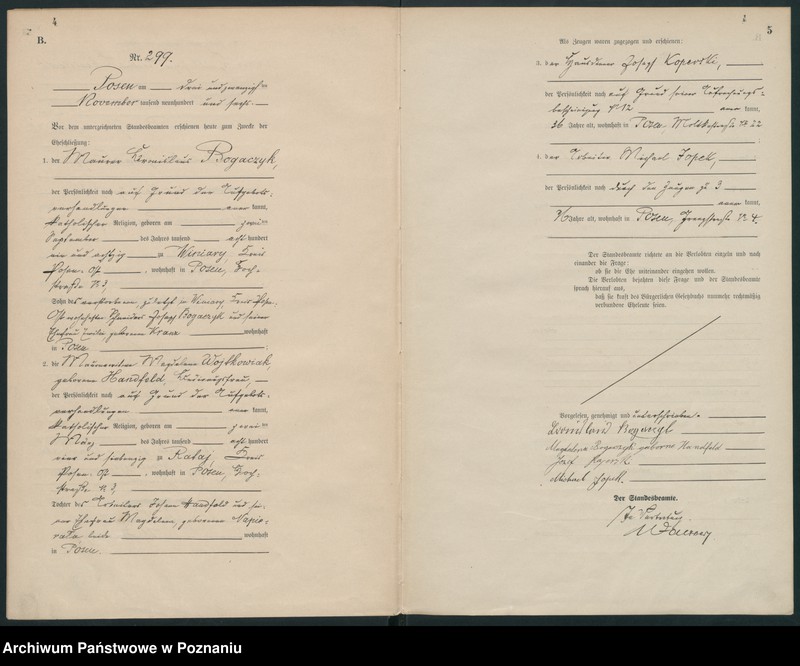 4
B.
Nr. 299.
Posen am drei und zwanzigsten
November tausend neunhundert und sechs.
Vor dem unterzeichneten Standesbeamten erschienen heute zum Zwecke der
Eheschließung:
1. der Maurer Bogaczyk,
der Persönlichkeit nach auf Grund der Aufgebots-
verhandlungen kannt,
katholischer Religion, geboren am zwei
September des Jahres tausend acht hundert
ein und achtzig in Winiary, Kreis
Posen-Ost, wohnhaft in Posen,
straße N 3,
Sohn des verstorbenen, zuletzt in Winiary, Kreis Posen-
Ost wohnhaften Joseph Bogaczyk und seiner
Ehefrau geborene wohnhaft
in Posen;
2. die Magdalena Wojtkowiak,
geborene Handfeld,
der Persönlichkeit nach auf Grund der Aufgebots-
verhandlungen kannt,
katholischer Religion, geboren am
März des Jahres tausend acht hundert
vier und siebenzig in Rataj, Kreis
Posen-Ost, wohnhaft in Posen,
straße N 3,
Tochter des Arbeiters Johann Handfeld und sei-
ner Ehefrau Magdalena, geborenen
beide wohnhaft
in Posen.
5
Als Zeugen waren zugezogen und erschienen:
3. der Hausdiener Joseph
der Persönlichkeit nach auf Grund seiner
bescheinigung N 12 kannt,
36 Jahre alt, wohnhaft in Posen, Moltkestraße N 22
4. der Arbeiter Michael Jopek,
der Persönlichkeit nach durch den Zeugen zu 3
kannt,
Jahre alt, wohnhaft in Posen, N 4.
Der Standesbeamte richtete an die Verlobten einzeln und nach
einander die Frage:
ob sie die Ehe miteinander eingehen wollen.
Die Verlobten bejahten diese Frage und der Standesbeamte
sprach hierauf aus,
daß sie kraft des Bürgerlichen Gesetzbuchs nunmehr rechtmäßig
verbundene Eheleute seien.
Vorgelesen, genehmigt und unterschrieben.
Magdalena Bogaczyk geborene Handfeld
Józef
Michael Jopek.
Der Standesbeamte.
In Vertretung.
Archiwum Państwowe w Poznaniu